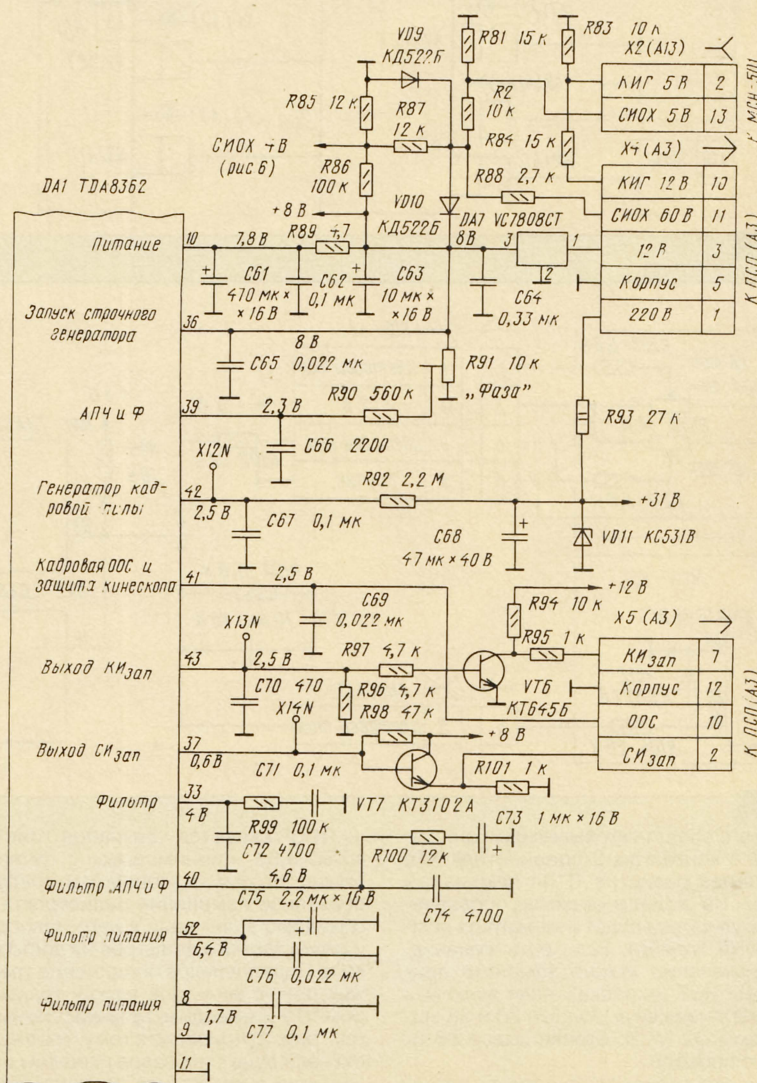 VD9
КД522Б
R81 15 к
R83 10 к
X2(A13)
КИГ 5 В 2
СИОХ 5 В 13
К МСН-501
R85 12 к
R87
12 к
R2
10 к
R84 15 к
X4(A3)
СИОХ 4В
(рис 6)
R86
100 к
R88 2,7 к
КИГ 12 В 10
СИОХ 60 В 11
12 В 3
Корпус 5
220 В 1
К ПСП (А3)
DA1 TDA8362
+8 В
VD10
КД522Б
DA7 VC7808CT
Питание
10
7,8 В
R89 4,7
8 В
3
1
2
C61
470 мк ×
× 16 В
C62
0,1 мк
C63
10 мк ×
× 16 В
C64
0,33 мк
Запуск строчного
генератора
36
8 В
C65 0,022 мк
R91 10 к
„Фаза"
АПЧ и Ф
39
2,3 В
R90 560 к
C66 2200
R93 27 к
X12N
Генератор кад-
ровой пилы
42
2,5 В
R92 2,2 М
+31 В
C67 0,1 мк
C68
47 мк × 40 В
VD11 КС531В
Кадровая ООС и
защита кинескопа
41
2,5 В
C69
0,022 мк
+12 В
R94 10 к
R95 1 к
X5 (A3)
КИзап 7
Корпус 12
ООС 10
СИзап 2
К ПСП (А3)
X13N
Выход КИзап
43
2,5 В
R97 4,7 к
VT6
КТ645Б
C70 470
R96 4,7 к
R98 47 к
X14N
Выход СИзап
37
0,6 В
+8 В
C71 0,1 мк
R101 1 к
VT7 КТ3102А
Фильтр
33
4 В
R99 100 к
C72 4700
C73 1 мк × 16 В
R100 12к
Фильтр АПЧ и Ф
40
4,6 В
C75 2,2 мк × 16 В
C74 4700
Фильтр питания
52
6,4 В
C76 0,022 мк
Фильтр питания
8
1,7 В
C77 0,1 мк
9
11